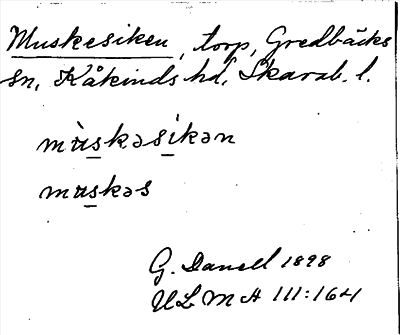 Muskesiken, torp, Gredbäcks
sn, Kåkinds hd, Skarab. l.
mùskəsikən
muskəs
G. Danell 1898
ULMA 111:164